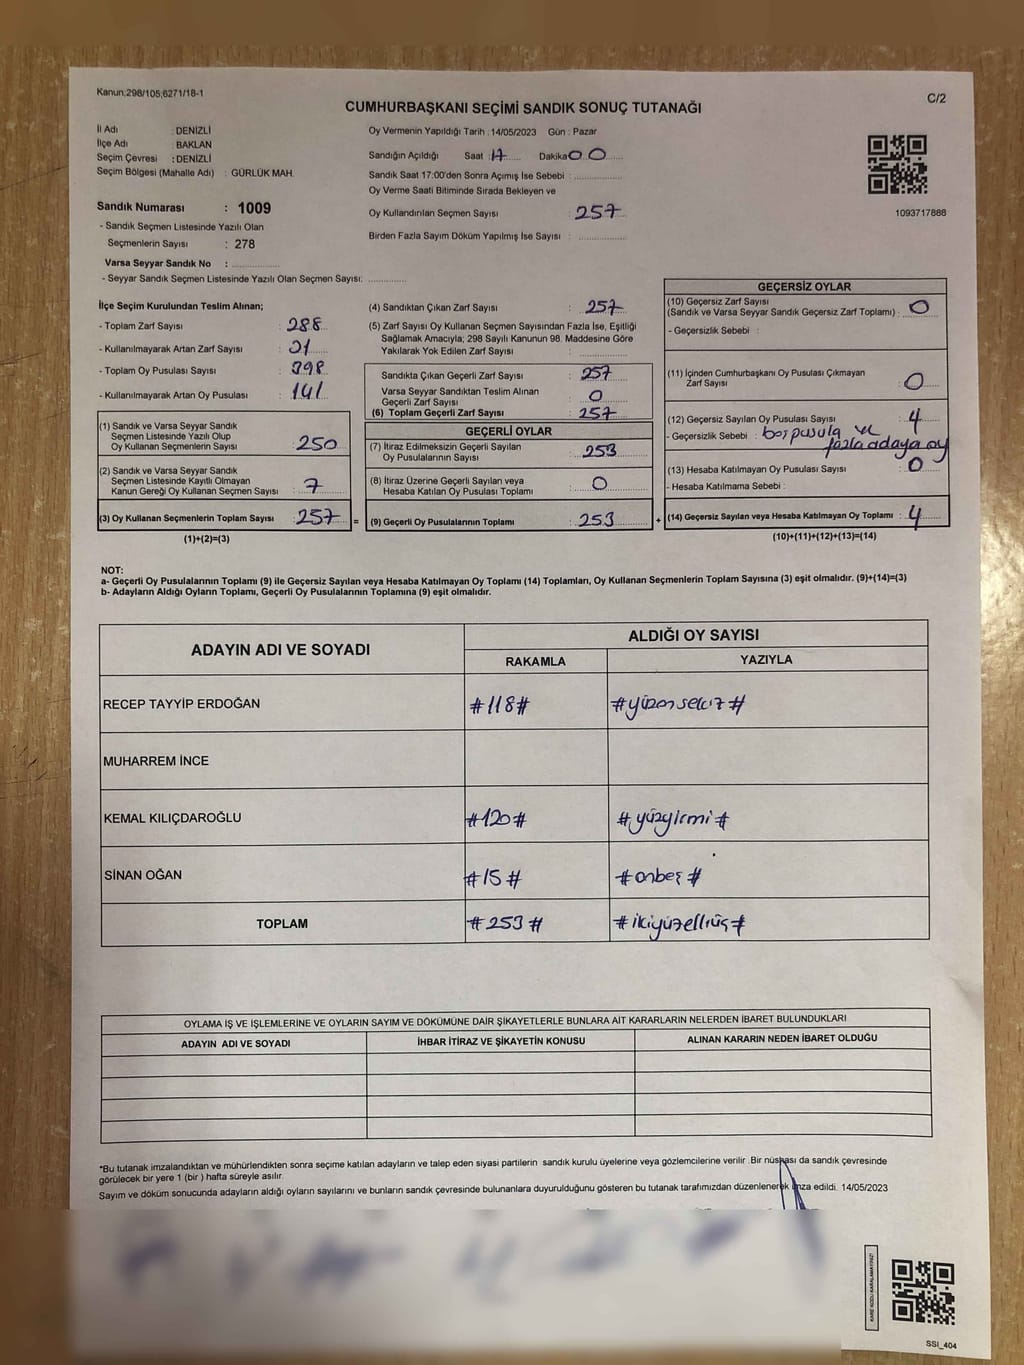 Kanun;298/105;6271/18-1
C/2
CUMHURBAŞKANI SEÇİMİ SANDIK SONUÇ TUTANAĞI
İl Adı : DENİZLİ
İlçe Adı : BAKLAN
Seçim Çevresi : DENİZLİ
Seçim Bölgesi (Mahalle Adı) : GÜRLÜK MAH.
Sandık Numarası : 1009
- Sandık Seçmen Listesinde Yazılı Olan
Seçmenlerin Sayısı : 278
Varsa Seyyar Sandık No :
- Seyyar Sandık Seçmen Listesinde Yazılı Olan Seçmen Sayısı:
Oy Vermenin Yapıldığı Tarih : 14/05/2023 Gün : Pazar
Sandığın Açıldığı Saat : 17 Dakika 00
Sandık Saat 17:00'den Sonra Açımış İse Sebebi :
Oy Verme Saati Bitiminde Sırada Bekleyen ve
Oy Kullandırılan Seçmen Sayısı : 257
Birden Fazla Sayım Döküm Yapılmış İse Sayısı :
1093717888
İlçe Seçim Kurulundan Teslim Alınan;
- Toplam Zarf Sayısı : 288
- Kullanılmayarak Artan Zarf Sayısı : 31
- Toplam Oy Pusulası Sayısı : 398
- Kullanılmayarak Artan Oy Pusulası : 141
(1) Sandık ve Varsa Seyyar Sandık
Seçmen Listesinde Yazılı Olup
Oy Kullanan Seçmenlerin Sayısı : 250
(2) Sandık ve Varsa Seyyar Sandık
Seçmen Listesinde Kayıtlı Olmayan
Kanun Gereği Oy Kullanan Seçmen Sayısı : 7
(3) Oy Kullanan Seçmenlerin Toplam Sayısı : 257 =
(1)+(2)=(3)
(4) Sandıktan Çıkan Zarf Sayısı : 257
(5) Zarf Sayısı Oy Kullanan Seçmen Sayısından Fazla İse, Eşitliği
Sağlamak Amacıyla; 298 Sayılı Kanunun 98. Maddesine Göre
Yakılarak Yok Edilen Zarf Sayısı :
Sandıkta Çıkan Geçerli Zarf Sayısı : 257
Varsa Seyyar Sandıktan Teslim Alınan
Geçerli Zarf Sayısı : 0
(6) Toplam Geçerli Zarf Sayısı : 257
GEÇERLİ OYLAR
(7) İtiraz Edilmeksizin Geçerli Sayılan
Oy Pusulalarının Sayısı : 253
(8) İtiraz Üzerine Geçerli Sayılan veya
Hesaba Katılan Oy Pusulası Toplamı : 0
(9) Geçerli Oy Pusulalarının Toplamı : 253 +
GEÇERSİZ OYLAR
(10) Geçersiz Zarf Sayısı
(Sandık ve Varsa Seyyar Sandık Geçersiz Zarf Toplamı) : 0
- Geçersizlik Sebebi :
(11) İçinden Cumhurbaşkanı Oy Pusulası Çıkmayan
Zarf Sayısı : 0
(12) Geçersiz Sayılan Oy Pusulası Sayısı : 4
- Geçersizlik Sebebi : boş pusula ve
fazla adaya oy
(13) Hesaba Katılmayan Oy Pusulası Sayısı : 0
- Hesaba Katılmama Sebebi :
(14) Geçersiz Sayılan veya Hesaba Katılmayan Oy Toplamı : 4
(10)+(11)+(12)+(13)=(14)
NOT:
a- Geçerli Oy Pusulalarının Toplamı (9) ile Geçersiz Sayılan veya Hesaba Katılmayan Oy Toplamı (14) Toplamları, Oy Kullanan Seçmenlerin Toplam Sayısına (3) eşit olmalıdır. (9)+(14)=(3)
b- Adayların Aldığı Oyların Toplamı, Geçerli Oy Pusulalarının Toplamına (9) eşit olmalıdır.
ADAYIN ADI VE SOYADI
ALDIĞI OY SAYISI
RAKAMLA
YAZIYLA
RECEP TAYYİP ERDOĞAN #118# #yüzonsekiz#
MUHARREM İNCE
KEMAL KILIÇDAROĞLU #120# #yüzyirmi#
SİNAN OĞAN #15# #onbeş#
TOPLAM #253# #ikiyüzelliüç#
OYLAMA İŞ VE İŞLEMLERİNE VE OYLARIN SAYIM VE DÖKÜMÜNE DAİR ŞİKAYETLERLE BUNLARA AİT KARARLARIN NELERDEN İBARET BULUNDUKLARI
ADAYIN ADI VE SOYADI
İHBAR İTİRAZ VE ŞİKAYETİN KONUSU
ALINAN KARARIN NEDEN İBARET OLDUĞU
*Bu tutanak imzalandıktan ve mühürlendikten sonra seçime katılan adayların ve talep eden siyasi partilerin sandık kurulu üyelerine veya gözlemcilerine verilir .Bir nüshası da sandık çevresinde
görülecek bir yere 1 (bir ) hafta süreyle asılır.
Sayım ve döküm sonucunda adayların aldığı oyların sayılarını ve bunların sandık çevresinde bulunanlara duyurulduğunu gösteren bu tutanak tarafımızdan düzenlenerek imza edildi. 14/05/2023
KARE KODU KARALAMAYINIZ!
SSI_404